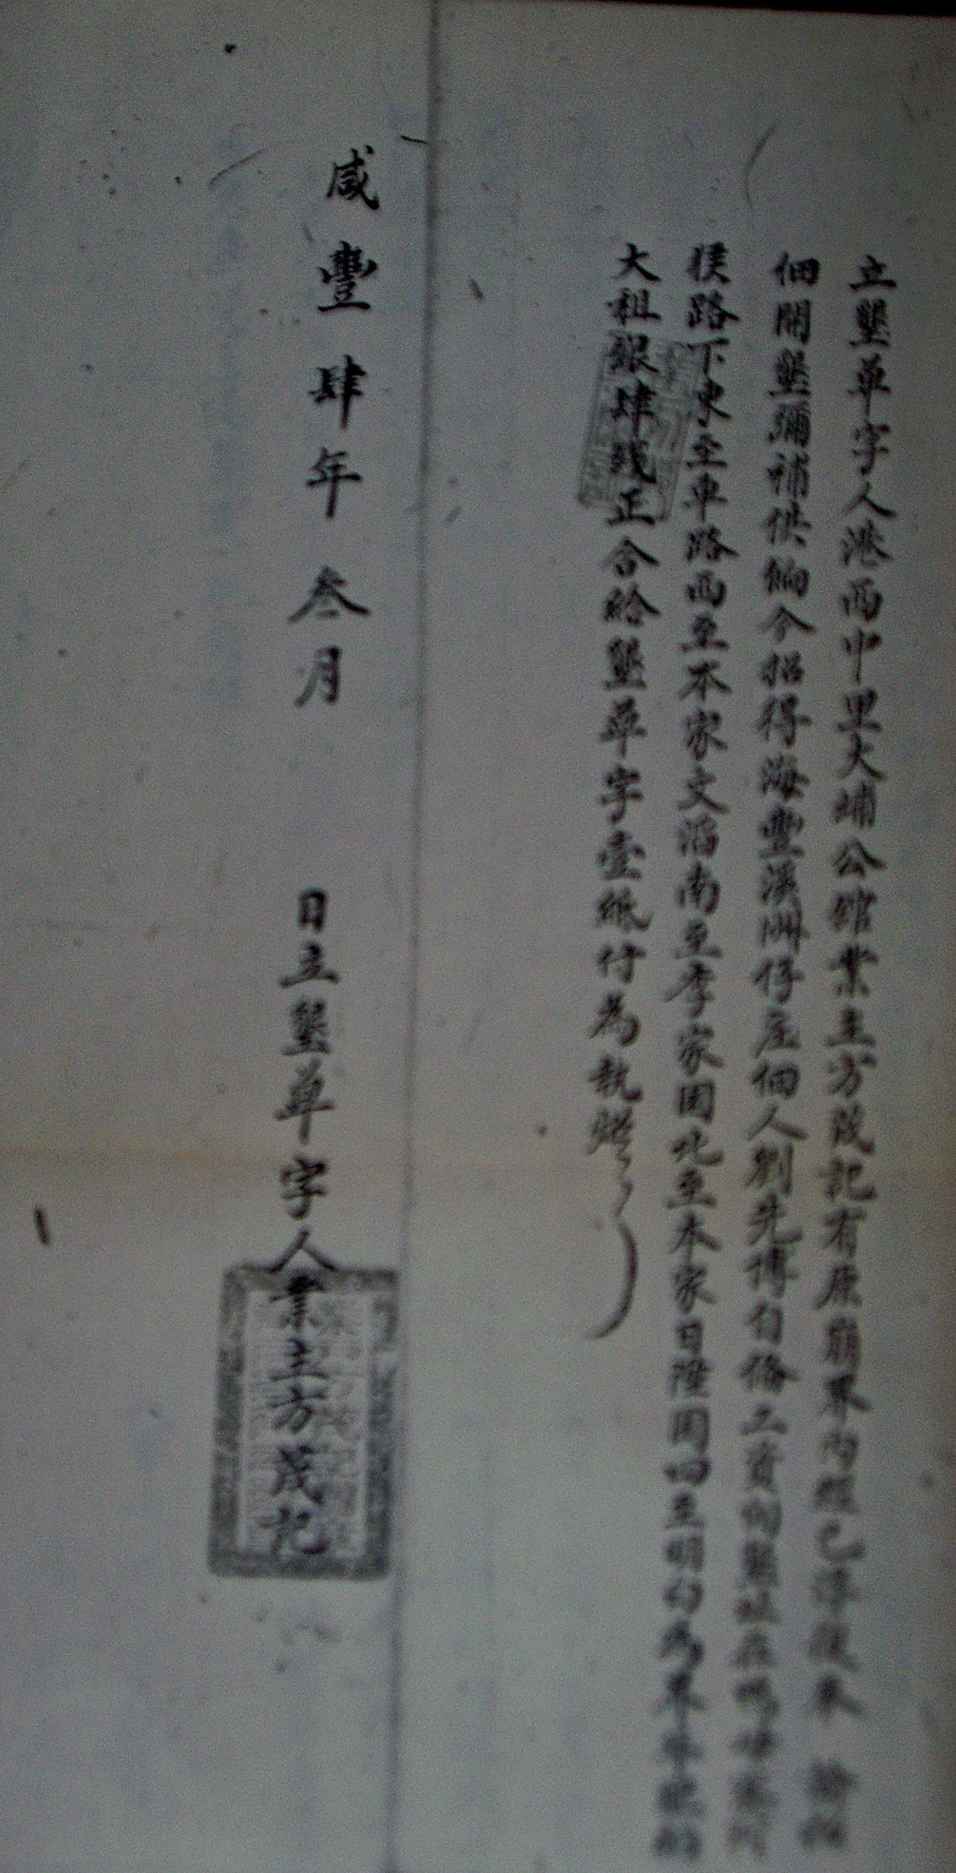 立墾單字人港西中里大埔公館業主方茂記有原崩界內經已浮復本
佃開墾彌補供餉今招得海豐溪洲仔庄佃人劉先傳自俻工資向墾址在
侯路下東至車路西至本家文滔南至李家園北至本家日陞園四至明白為界年
大租銀肆錢正合給墾單字壹紙付為執炤
咸豐肆年叁月 日立墾單字人業主方茂記